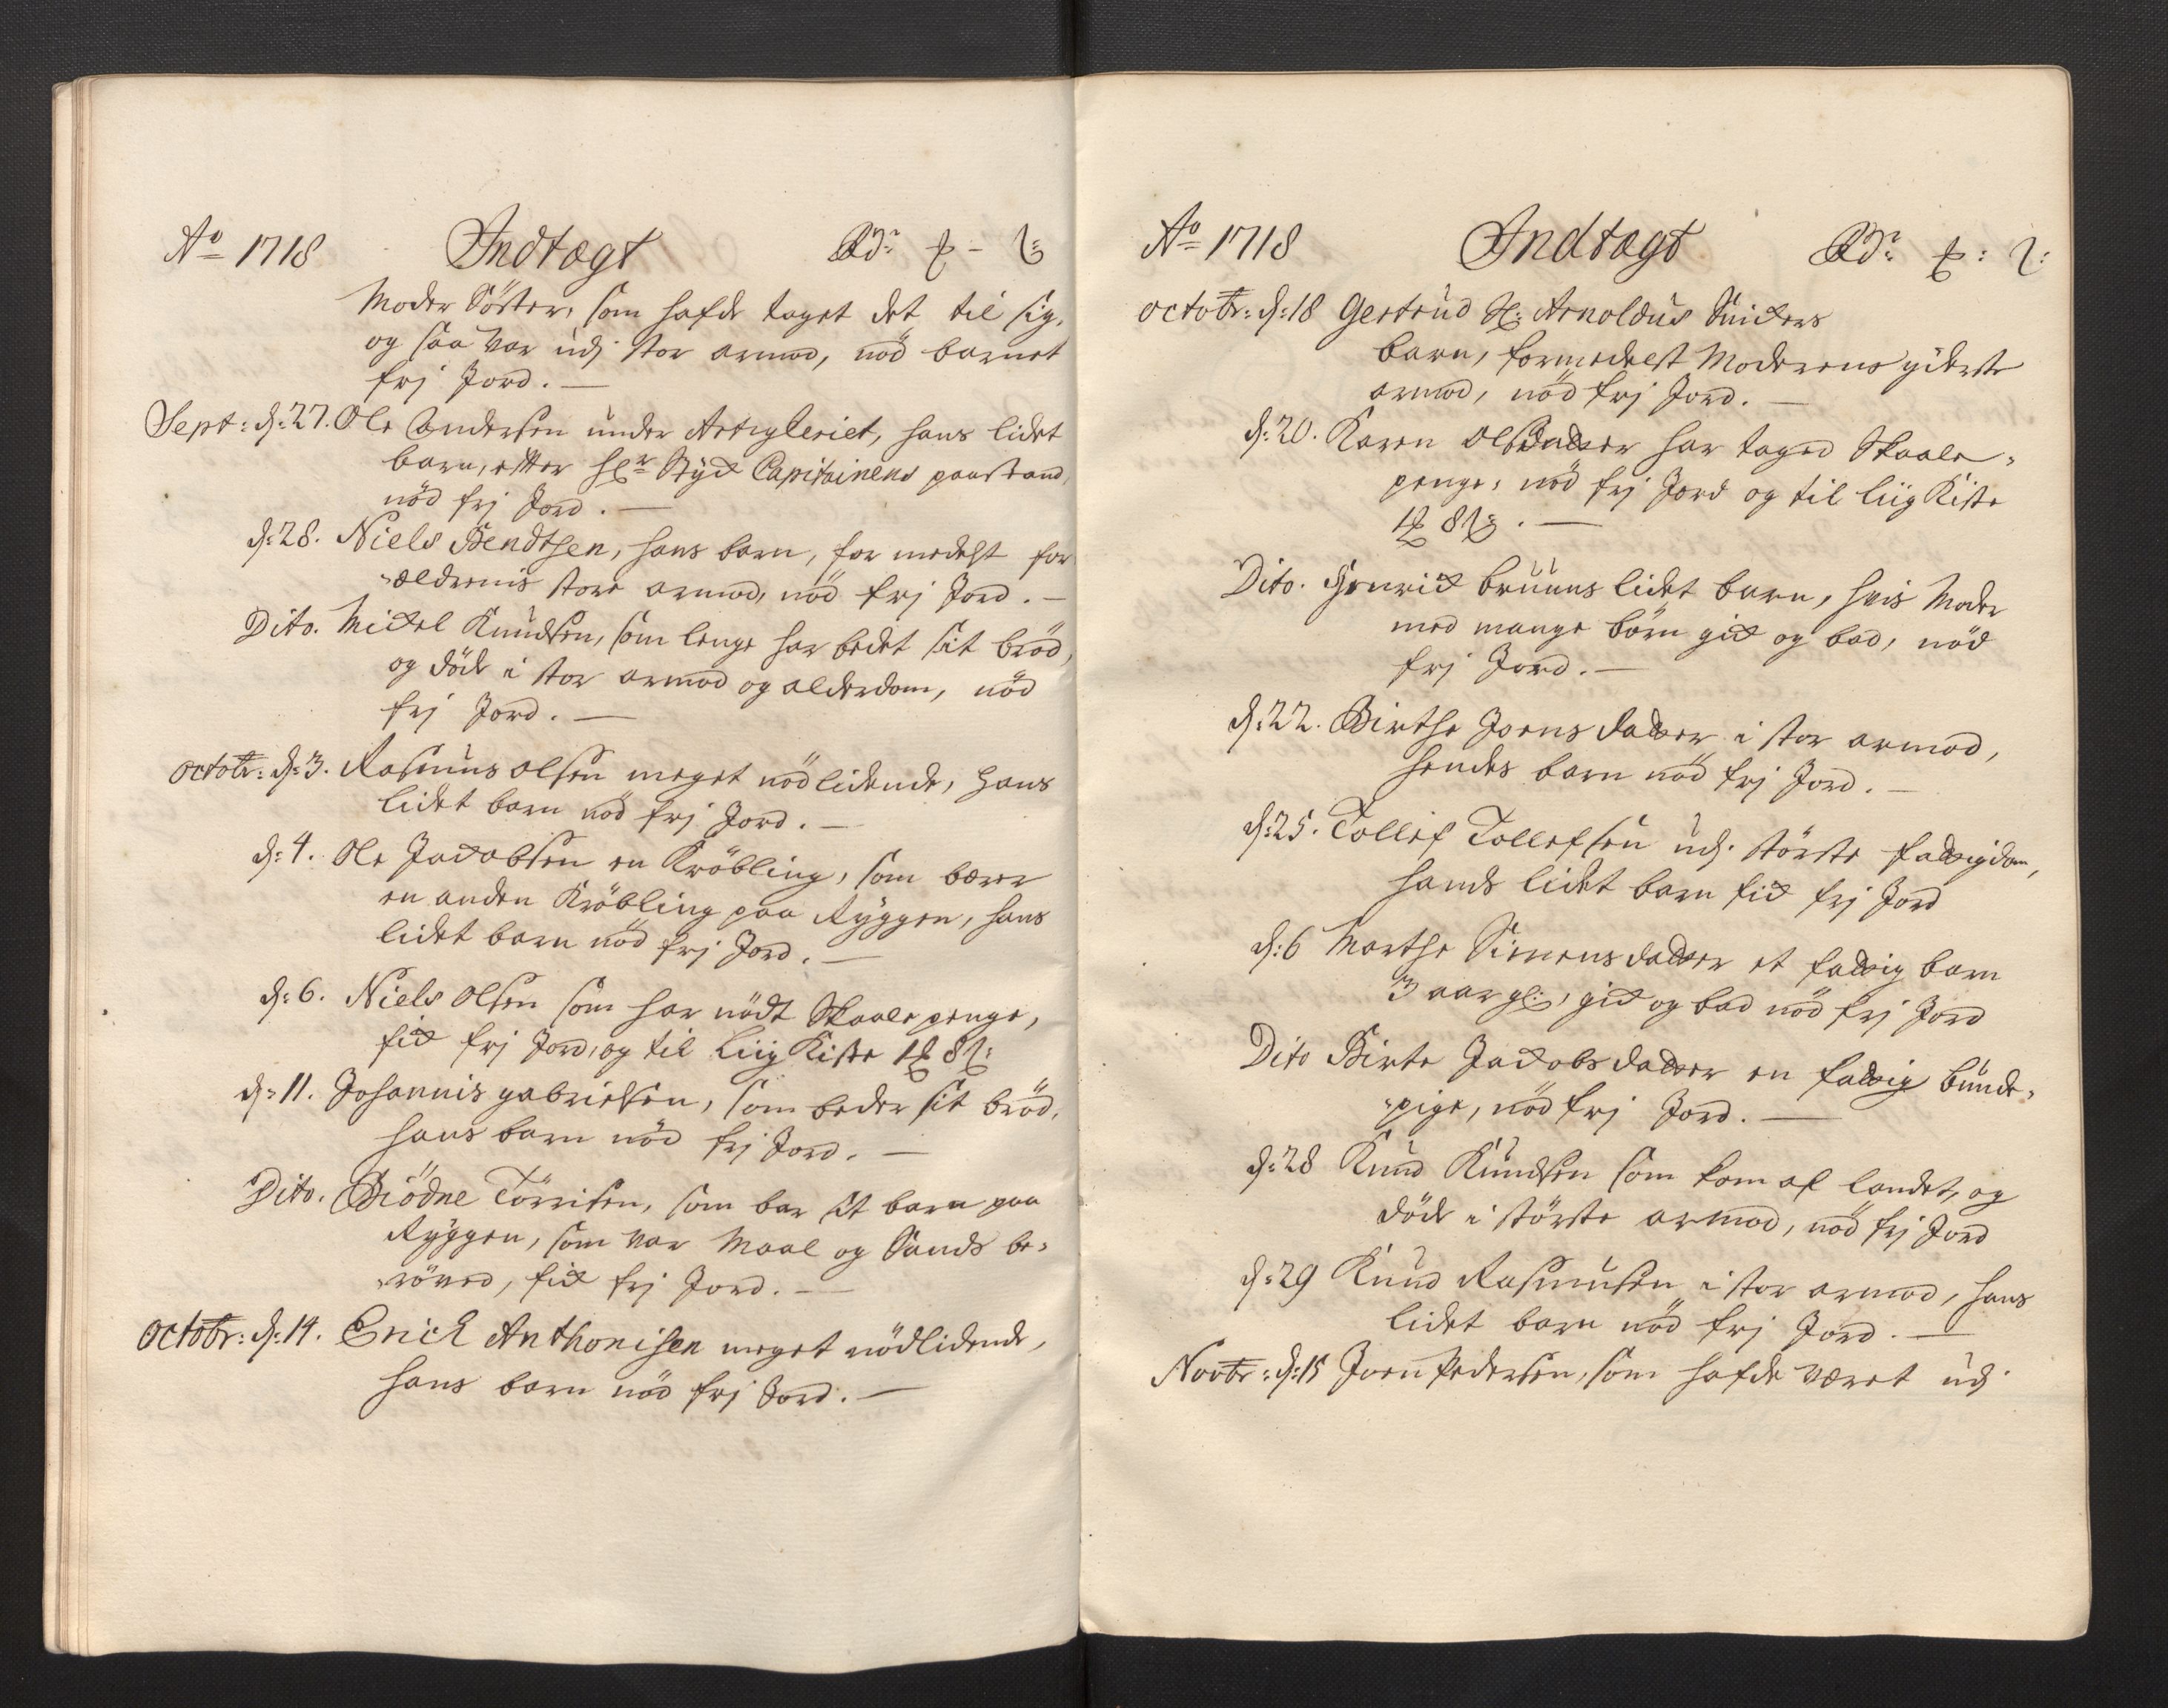 Aō 1718 Indtægt Rdr: ℳ - ß:
Moder Söster, som hafde taget det til sig,
og saa var udj stor armod, nöd barnet
frj Jord. —
Sept: d: 27. Ole Andersen under Artiglleriet, hans lidet
barn, efter Hr Styck Capitainens paastand,
nöd frj Jord. —
d: 28. Niels Bendtsen, hans barn, for medelst for
-ældrenis store armod, nöd frj Jord. —
Dito. Mickel Knudsen, som lenge har bedet sit bröd,
og döde i stor armod og alderdom, nöd
frj Jord. —
Octobr: d: 3. Rasmus Olsen meget nödlidende, hans
lidet barn nöd frj Jord. —
d: 4. Ole Jacobsen en Kröbling, som bærer
en anden Kröbling paa Ryggen, hans
lidet barn nöd frj Jord. —
d: 6. Niels Olsen som har nödt Skaale penge,
fick frj Jord, og til Liig Kiste 1 ℳ 8 ß:
d: 11. Johannis gabrielsen, som beder sit bröd,
hans barn nöd frj Jord. —
Dito. Biödne Törrisen, som bar sit barn paa
Ryggen, som var Maal og Sands be-
-röved, fick frj Jord. —
Octobr: d: 14. Erich Anthonisen meget nödlidende,
hans barn nöd frj Jord. —
Aō 1718 Indtægt Rdr: ℳ: ß:
Octobr: d: 18 Gertrud Sl: Arnoldus Snickers
barn, formedelst Moderens yderste
armod, nöd frj Jord. —
d: 20. Karen Olsdatter har taged Skaale-
penge, nöd frj Jord og til Liig Kiste
1 ℳ 8 ß. —
Dito. Henrick bruuns lidet barn, hvis Moder
med mange börn gick og bad, nöd
frj Jord. —
d: 22. Birthe Joensdatter i stor armod,
hendes barn nöd frj Jord. —
d: 25. Tollef Tollefsen udj störste fattigdom,
hands lidet barn fick frj Jord
d: 6 Marthe Simensdatter et fattig barn
3 aar gl:, gick og bad nöd frj Jord
Dito Birte Jacobsdatter en fattig bunde-
-pige, nöd frj Jord. —
d: 28 Knud Knudsen som kom af landet, og
döde i störste armod, nöd frj Jord
d: 29 Knud Rasmusen i stor armod, hans
lidet barn nöd frj Jord. —
Novbr: d: 15 Joen Pedersen, som hafde været udj